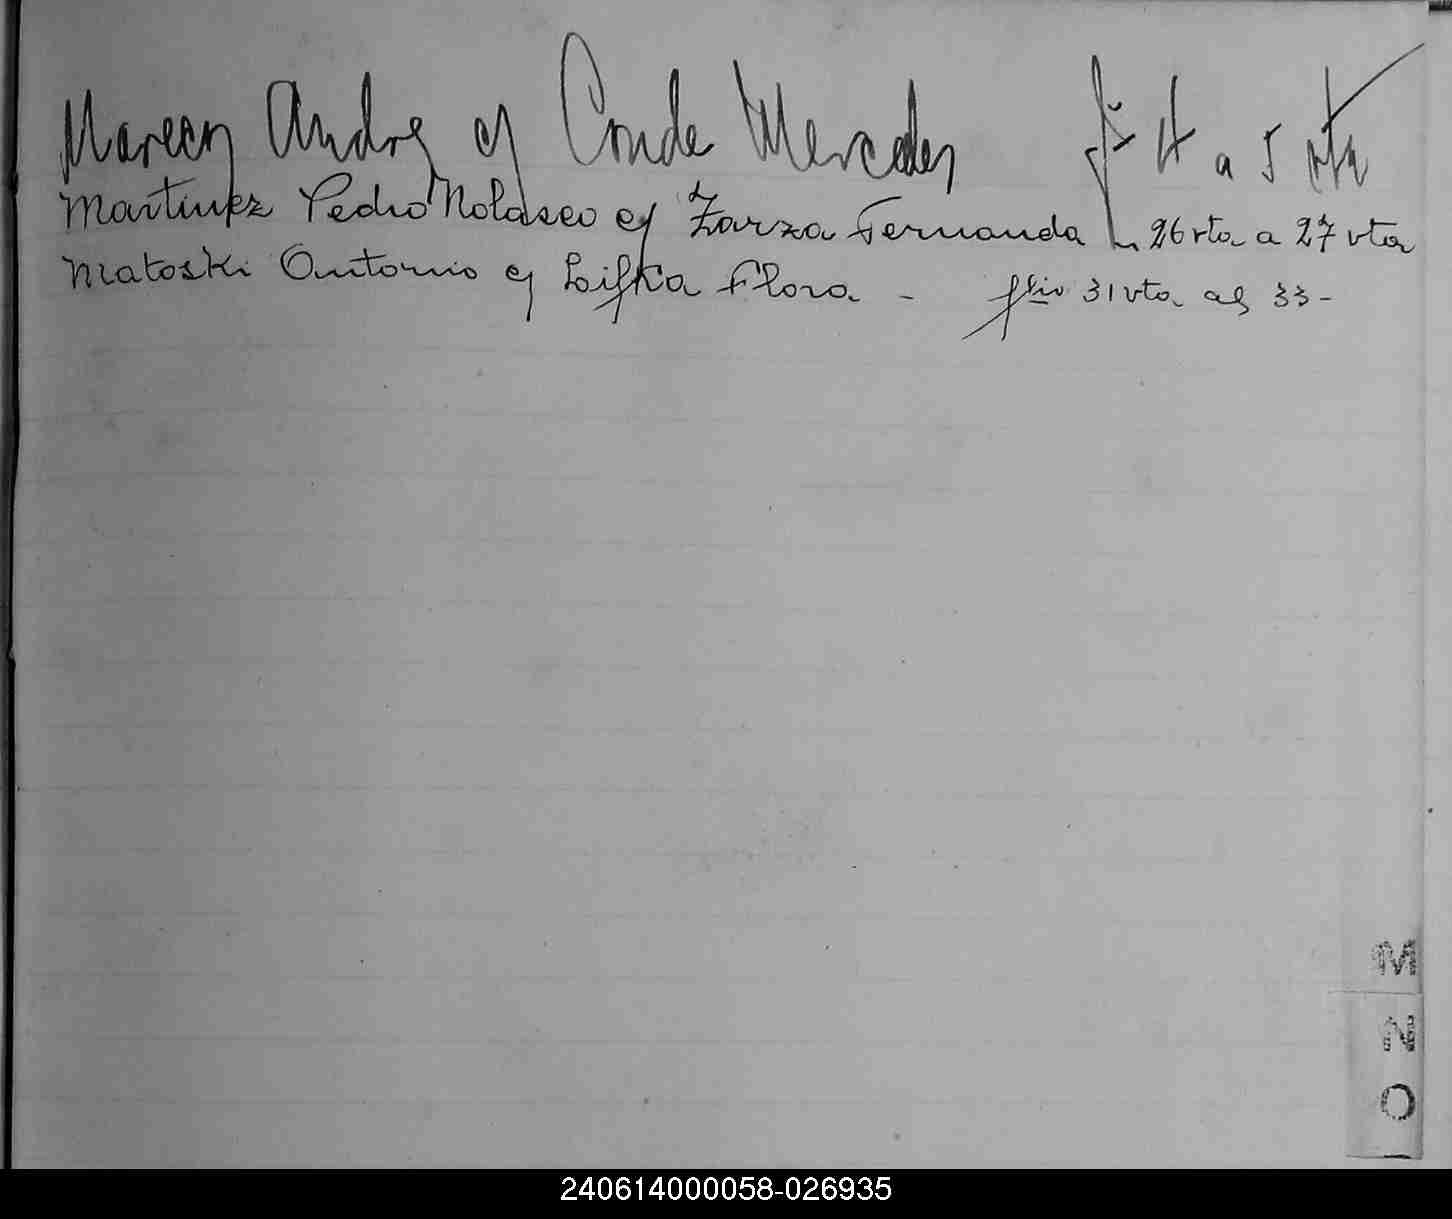 Marecos Andres c/ Conde Mercedes f° 4 a 5 vta
Martinez Pedro Nolasco c/ Zarza Fernanda 26 vta a 27 vta
Matoski Antonio c/ Lifka Flora - flio 31 vta al 33-
M
N
O
240614000058-026935